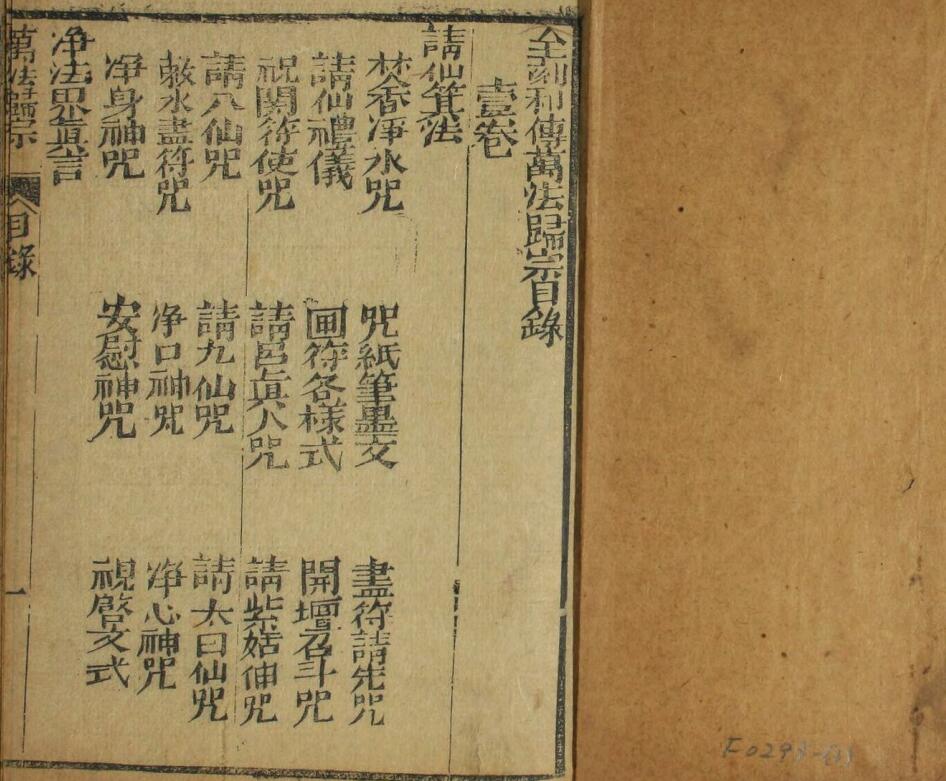 全刻秘傳萬法歸宗目錄
壹卷
請仙箕法
焚香凈水咒 咒紙筆墨文 畫符請先咒
請仙禮儀 画符各樣式 開壇召斗咒
祝開符使咒 請呂眞人咒 請紫姑伸咒
請八仙咒 請九仙咒 請太白仙咒
敕水畫符咒 凈口神咒 凈心神咒
凈身神咒 安慰神咒 視啓文式
凈法界眞言
萬法歸宗 目錄 一
F0298-(1)